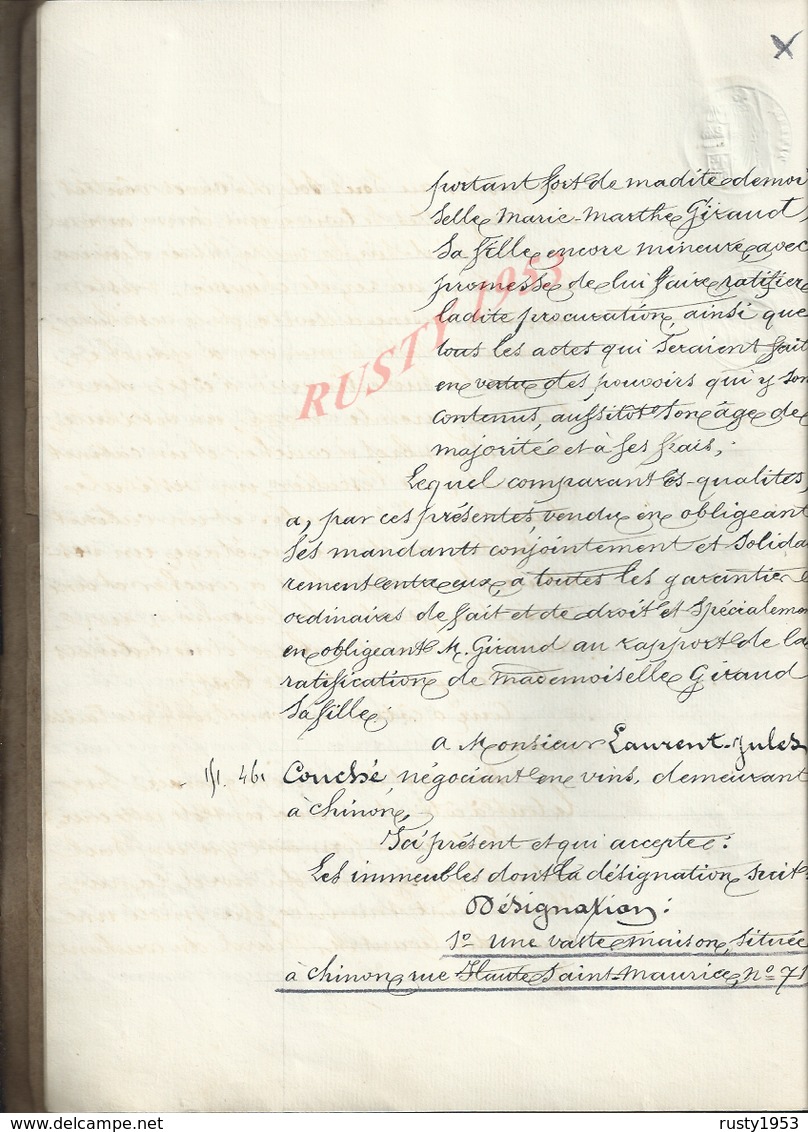 portant fort de madite demoi
selle Marie-Marthe Giraud,
sa fille encore mineure, avec
promesse de lui faire ratifier
ladite procuration, ainsi que
tous les actes qui seraient fait
en vertu des pouvoirs qui y son
contenus, aussitôt son âge de
majorité et à ses frais;
Lequel comparant ès-qualités,
a, par ces présentes, vendu en obligeant
ses mandants conjointement et solida
rement entre eux, à toutes les garanties
ordinaires de fait et de droit et spécialemen
en obligeant M. Giraud au rapport de la
ratification de mademoiselle Giraud
sa fille;
a Monsieur Laurent-Jules
Couché, négociant en vins, demeurant
à Chinon,
Ici présent et qui accepte:
Les immeubles dont la désignation suit:
Désignation:
1º Une vaste maison, située
à Chinon, rue Haute Saint-Maurice, nº 71
RUSTY 1953
rusty1953